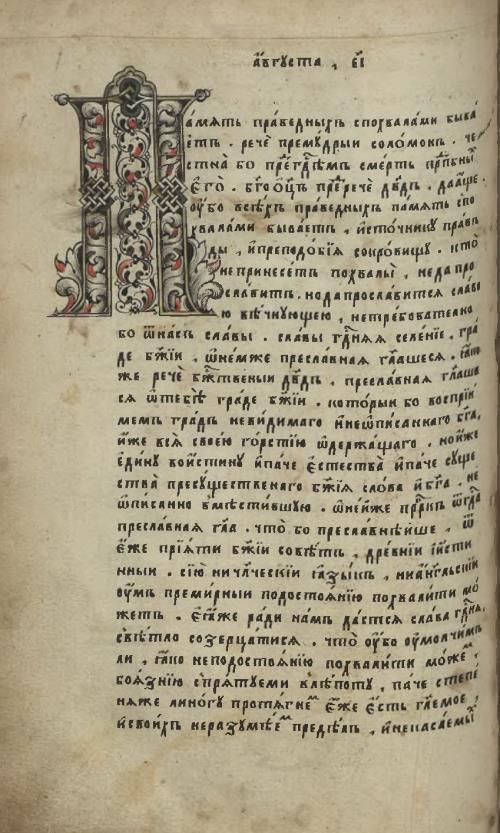 а҆́вгꙋста , є҃і
Па́мѧть пра́ведныхъ спохвала́ми быва́
етъ . речѐ премꙋ́дрыи соломо́нъ . че
стна̀ бо пре́дгⷭ҇демъ сме́рть прпⷣбныⷯ
є҆го̀ . бг҃оѻ҆ц҃ъ прⷣречѐ дв҃дъ . да а҆́ще
оу҆́бо всѣ́хъ пра́ведныхъ па́мѧть спо
хвала́ми быва́етъ , и҆сто́чникꙋ пра́въ
ды , и҆преподо́бїѧ сокро́вищꙋ . кто̀
непринесе́тъ похвалы̀ , неда про
сла́витъ . но да просла́витсѧ сла́во
ю вѣ́чнꙋющею , нетре́бователно
бо ѿна́съ сла́вы . сла́вы гдⷭ҇нѧѧ селе́нїе . гра́
де бж҃їи , ѡ҆не́мже пресла́внаѧ гл҃ашесѧ . ꙗ҆́ко
же речѐ бжⷭ҇твеныи дв҃дъ , пресла́внаѧ гл҃аша
сѧ ѡ҆тебѣ̀ гра́де бж҃їи . кото́рыи бо воспрїи́
мемъ гра́дъ неви́димаго и҆неѡ҆пи́саннаго бг҃а,
и҆́же всѧ̀ свое́ю го́рстїю ѡ҆держа́щаго . но и҆́же
є҆ди́нꙋ вои́стинꙋ и҆па́че є҆стества̀ и҆па́че сꙋще
ства̀ пресꙋ́щественаго бж҃їѧ сло́ва и҆бг҃а , не
ѡ҆пи́санно вмѣсти́вшꙋю . ѡ҆не́йже прⷪ҇ркъ ѿгдⷭ҇а
пресла́внаѧ гл҃а . что̀ бо пресла́внѣйше , ѿ
є҆́же прїѧ́ти бж҃їи совѣ́тъ , дре́внїи и҆́сти
нныи . сїю̀ ничл҃ческїи ꙗ҆зы́къ , ниа҆́нг҃льскїи
оу҆́мъ преми́рныи подостоѧ́нїю похвали́ти мо́
жетъ . є҆ѧ́же ра́ди на́мъ да́стсѧ сла́ва гдⷭ҇нѧ,
свѣ́тло созерца́тисѧ . что̀ оу҆́бо оу҆молчи́мъ
ли , ꙗ҆́ко неподостоѧ́нїю похвали́ти мо́жеⷨ ,
боѧ́знїю спрѧ́тꙋеми влѣ́потꙋ , па́че степе́
нѧже ли но́гꙋ протѧ́гнеⷨ є҆́же є҆́сть гл҃емое ,
и҆свои́хъ неразꙋмѣ́еⷨ предѣ́лъ , и҆некаса́емыⷯ